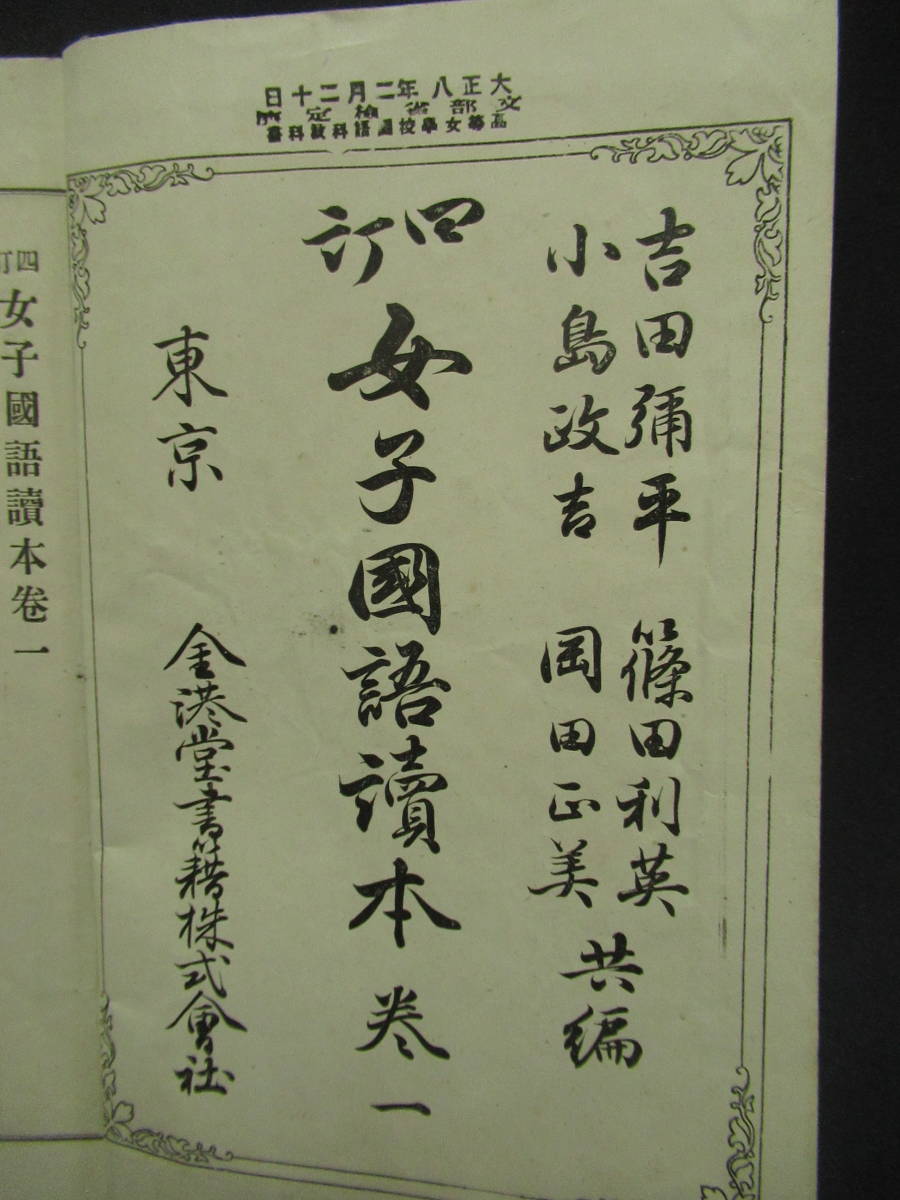 大正八年二月二十日
文部省檢定濟
高等女學校國語科敎科書
吉田彌平 篠田利英
小島政吉 岡田正美 共編
四訂 女子國語讀本 卷一
東京 金港堂書籍株式會社
四訂 女子國語讀本卷一